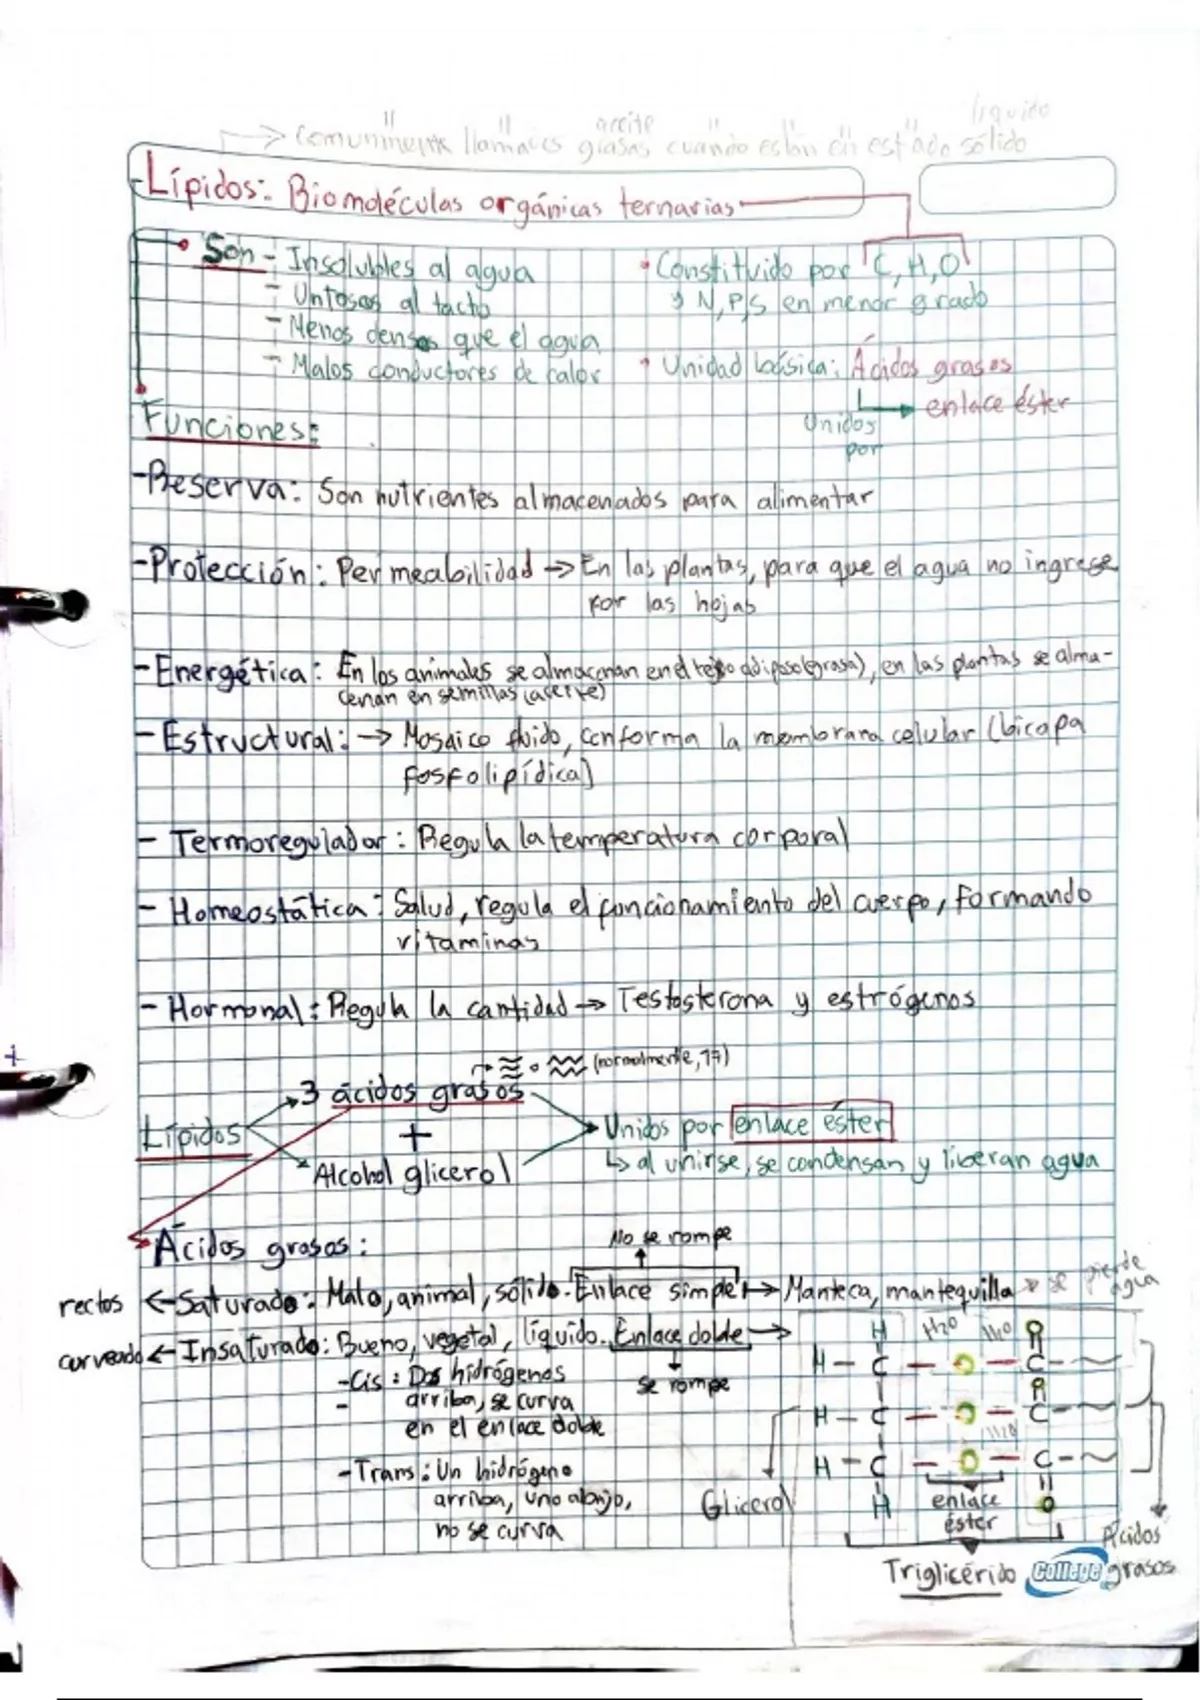 líquido
" " aceite " " "
→ comunmente llamamos grasas cuando están en estado sólido
Lípidos: Biomoléculas orgánicas ternarias
• Son - Insolubles al agua
- Untosos al tacto
- Menos densos que el agua
- Malos conductores de calor
• Constituido por C, H, O
y N, P, S en menor grado
• Unidad básica: Ácidos grasos
Unidos por → enlace éster
Funciones:
- Reserva: Son nutrientes almacenados para alimentar
- Protección: Permeabilidad → En las plantas, para que el agua no ingrese
por las hojas
- Energética: En los animales se almacenan en el tejido adiposo (grasa), en las plantas se alma-
cenan en semillas (aceite)
- Estructural: → Mosaico fluido, conforma la membrana celular (bicapa
fosfolipídica)
- Termoregulador: Regula la temperatura corporal
- Homeostática: Salud, regula el funcionamiento del cuerpo, formando
vitaminas
- Hormonal: Regula la cantidad → Testosterona y estrógenos
(normalmente, 17)
3 ácidos grasos
Lípidos
+
Alcohol glicerol
Unidos por enlace éster
↳ al unirse, se condensan y liberan agua
Ácidos grasos:
No se rompe
rectos ← Saturado: Malo, animal, sólido. Enlace simple → Manteca, mantequilla → se pierde agua
curveado ← Insaturado: Bueno, vegetal, líquido. Enlace doble →
se rompe
- Cis: Dos hidrógenos
arriba, se curva
en el enlace doble
- Trans: Un hidrógeno
arriba, uno abajo,
no se curva
H H2O H2O O
H - C - O - C
O
H - C - O - C
H2O
H - C - O - C
H O
Glicerol
enlace
éster
Ácidos
grasos
Triglicérido
College